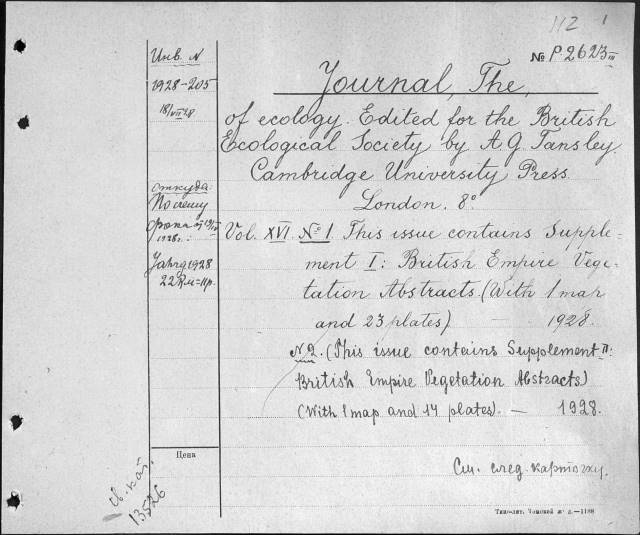 112 1
№ P. 2623 III
Инв. N
1928-205
18/VII 28
откуда:
Journal, The,
of ecology. Edited for the British
Ecological Society by A. G. Tansley.
Cambridge University Press.
London. 8°
Vol. XVI. №1. This issue contains Supple-
ment I: British Empire Vege-
tation Abstracts. (With 1 map
and 23 plates) — 1928.
N2. (This issue contains Supplement II:
British Empire Vegetation Abstracts)
(With 1 map and 14 plates). — 1928.
1928г.:
Jahrg 1928
Цена
См. след. карточку.
св. кат.
13526
Типо-лит. Томской ж д.—1188